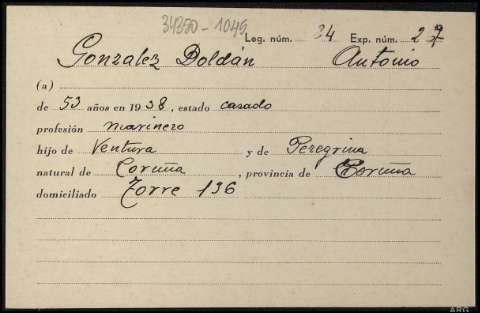 34350-1049
Leg. núm. 34 Exp. núm. 27
Gonzalez Doldán Antonio
(a)
de 53 años en 1938, estado casado
profesión marinero
hijo de Ventura y de Peregrina
natural de Coruña, provincia de Coruña
domiciliado Torre 136
ARG